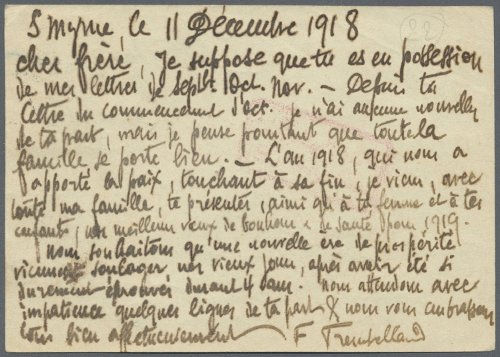 Smyrne, le 11 Décembre 1918
22
cher frère, Je suppose que tu es en possession
de mes lettres de Sept. Oct. Nov. — Depuis ta
lettre du commencement d'oct. je n'ai aucune nouvelle
de ta part, mais je pense pourtant que toute la
famille se porte bien. — L'an 1918, qui nous a
apporté la paix, touchant à sa fin, je viens, avec
toute ma famille, te présenter, ainsi qu'à ta femme et à tes
enfants, nos meilleurs vœux de bonheur & de santé pour 1919.
Nous souhaitons qu'une nouvelle ère de prospérité
vienne soulager nos vieux jours, après avoir été si
durement éprouvés durant 4 ans. Nous attendons avec
impatience quelques lignes de ta part & nous vous embrassons
tous bien affectueusement F